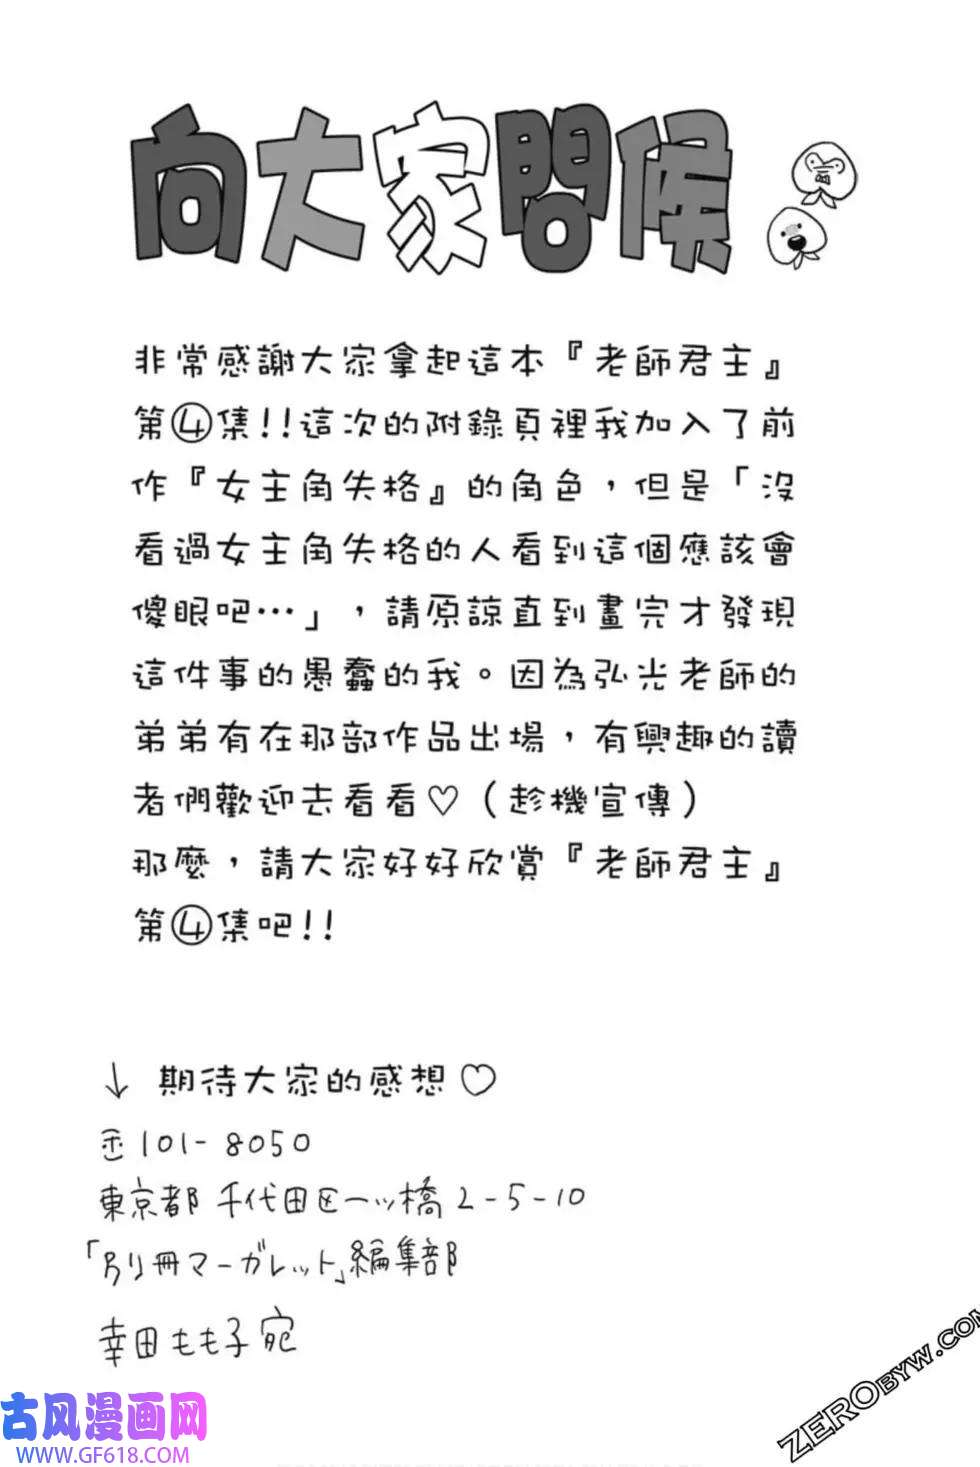 向大家問候
非常感謝大家拿起這本『老師君主』
第④集!!這次的附錄頁裡我加入了前
作『女主角失格』的角色，但是「沒
看過女主角失格的人看到這個應該會
傻眼吧…」，請原諒直到畫完才發現
這件事的愚蠢的我。因為弘光老師的
弟弟有在那部作品出場，有興趣的讀
者們歡迎去看看♡（趁機宣傳）
那麼，請大家好好欣賞『老師君主』
第④集吧!!
↓ 期待大家的感想♡
〒101-8050
東京都千代田区一ッ橋2-5-10
「別冊マーガレット」編集部
幸田もも子 宛
古风漫画网
WWW.GF618.COM
ZEROBYW.COM